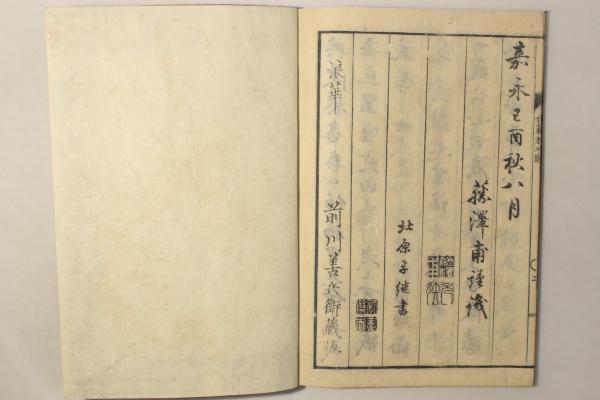 嘉永己酉秋八月
藤澤甫謹識
北原子継書
浪華
前川善兵衛藏版